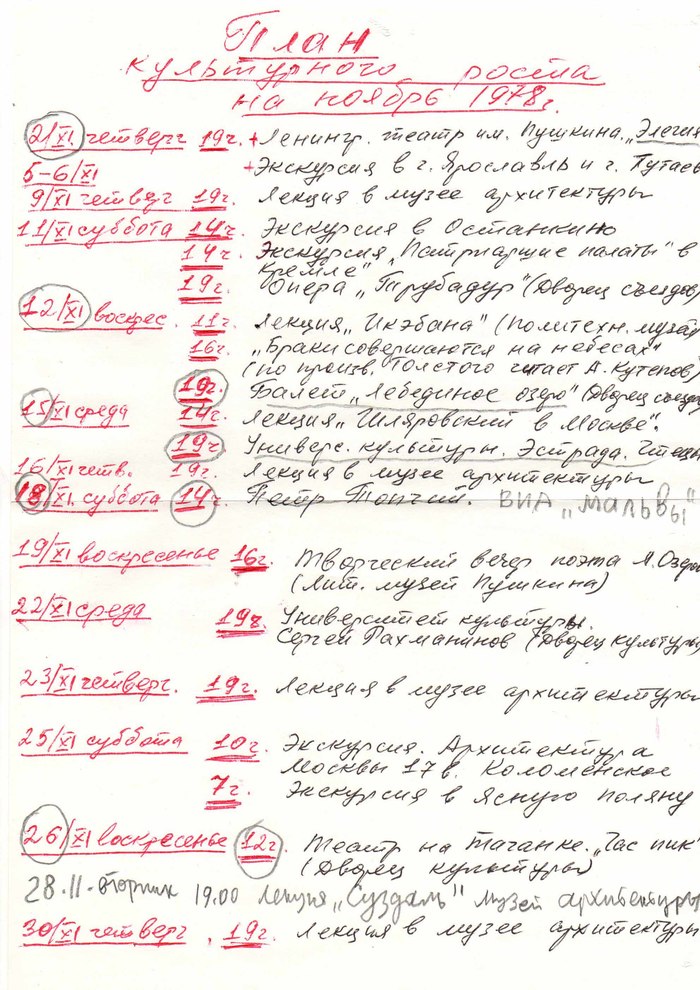 План
культурного роста
на ноябрь 1978г.
21/XI четверг 19ч. +Ленингр. театр им. Пушкина. „Элегия
5-6/XI +Экскурсия в г. Ярославль и г. Тутаев
9/XI четверг 19ч. Лекция в музее архитектуры
11/XI суббота 14ч. Экскурсия в Останкино
14ч. Экскурсия „Патриаршие палаты" в
Кремле"
19ч. Опера „Трубадур" (Дворец съездов
12/XI воскрес. 11ч. Лекция „Икэбана" (Политехн. музей
16ч. „Браки совершаются на небесах"
(по произв. Толстого читает А. Кутепов)
19ч. Балет „Лебединое озеро" (Дворец съезд
15/XI среда 14ч. Лекция „Шляровский в Москве".
19ч. Универс. культуры. Эстрада. Чтецы
16/XI четв. 19ч. Лекция в музее архитектуры
18/XI. суббота 14ч. Петр Топчий. ВИА „Мальвы"
19/XI воскресенье 16ч. Творческий вечер поэта Л. Озер
(Лит. музей Пушкина)
22/XI среда 19ч. Университет культуры.
Сергей Рахманинов (Дворец культуры)
23/XI четверг. 19ч. Лекция в музее архитектуры
25/XI суббота 10ч. Экскурсия. Архитектура
Москвы 17 в. Коломенское
7ч. Экскурсия в Ясную поляну
26/XI воскресенье 12ч. Театр на Таганке. „Час пик"
(Дворец культуры)
28.11-вторник 19.00 лекция „Суздаль" музей архитектуры
30/XI четверг, 19ч. Лекция в музее архитектуры